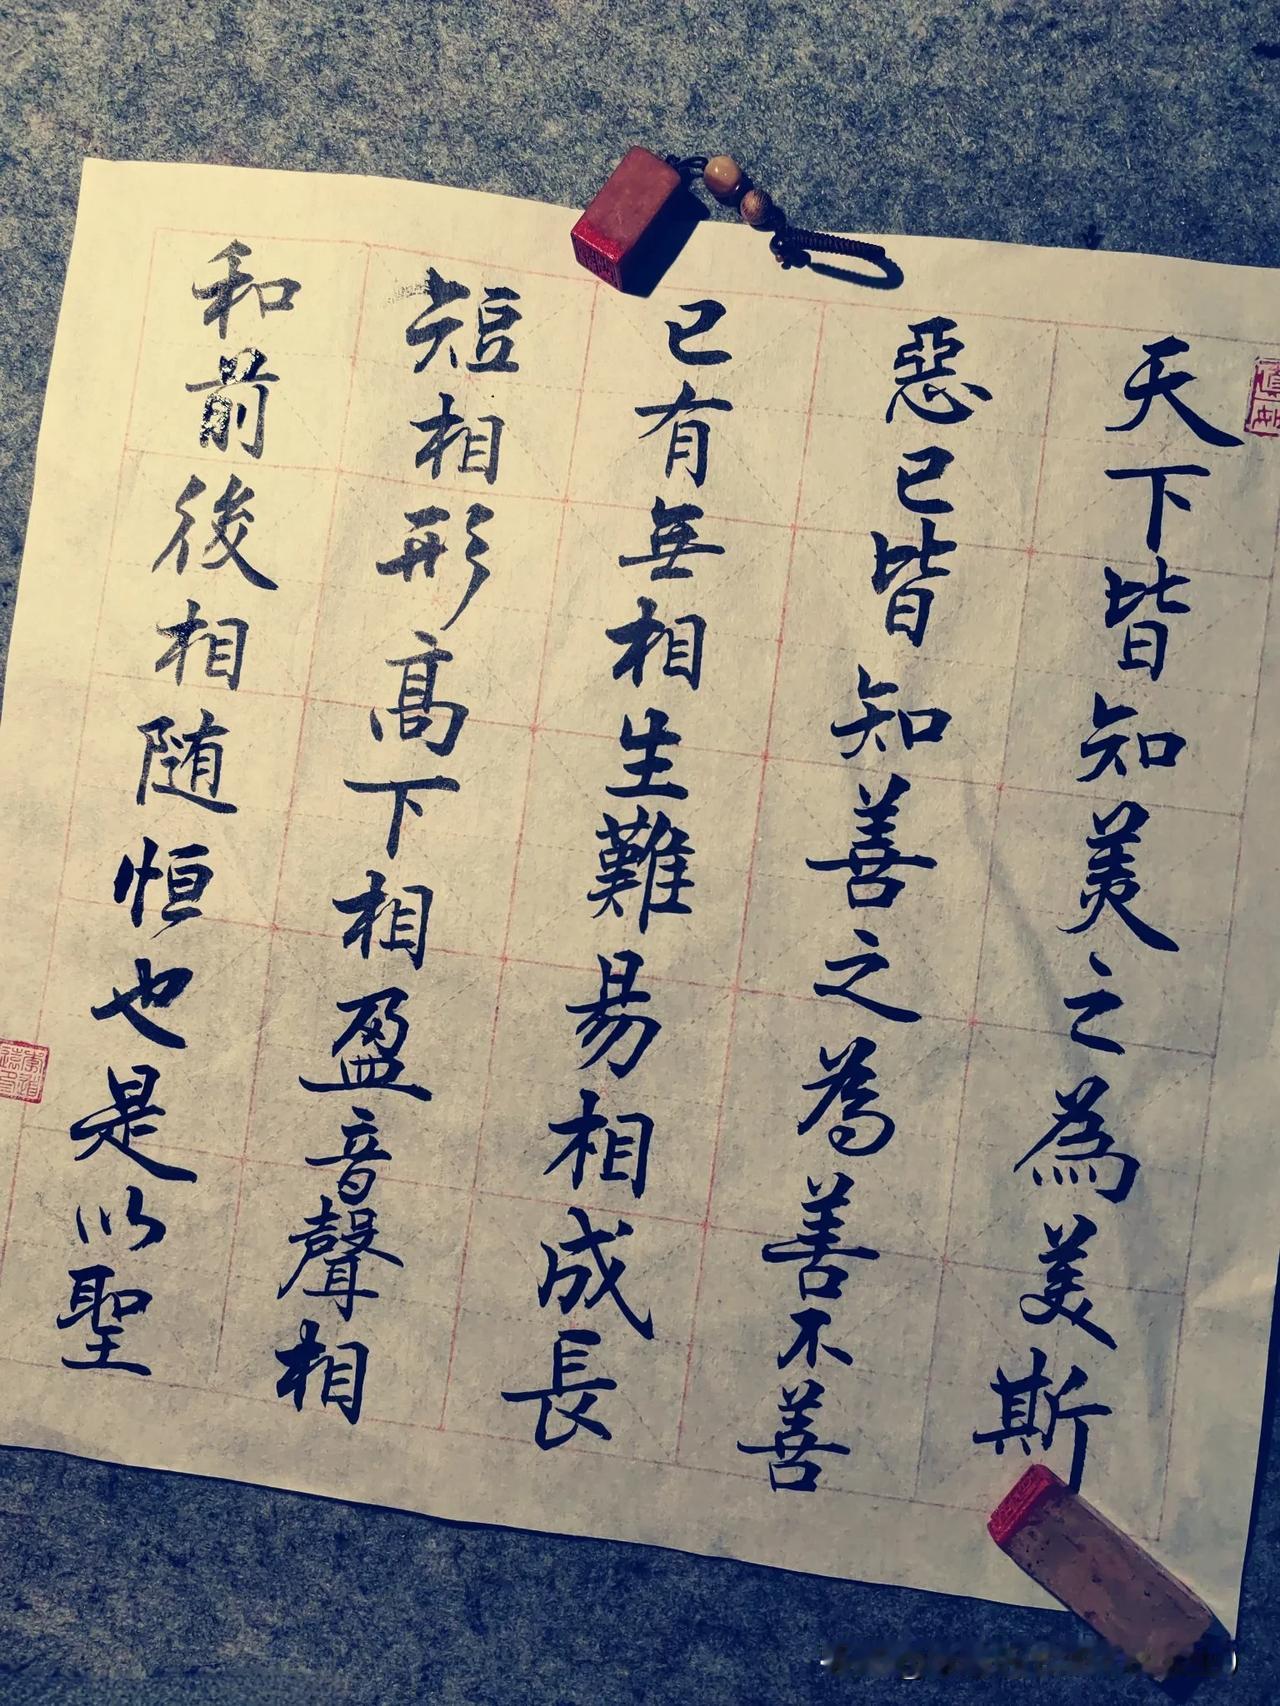 天下皆知美之為美斯
惡已皆知善之為善不善
已有無相生難易相成長
短相形高下相盈音聲相
和前後相随恒也是以聖